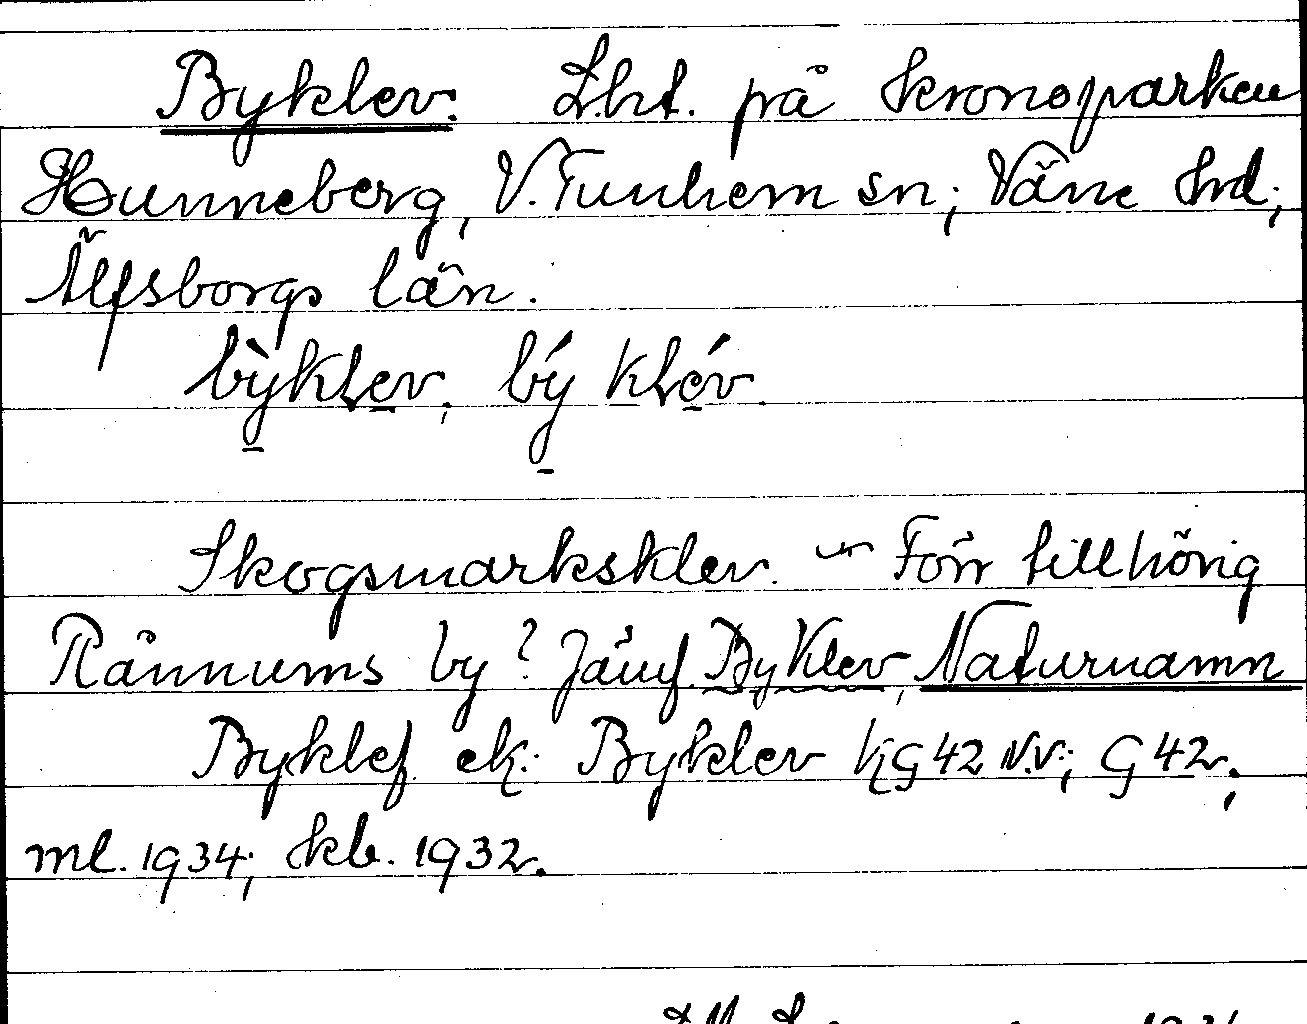 Byklev. Lht. på kronoparken
Hunneberg, V. Tunhem sn; Väne hd;
Älfsborgs län.
bỳklev; bý klév.
Skogsmarksklev. – Förr tillhörig
Rånnums by? Jämf. By Klev, Naturnamn
Byklef ek; Byklev KG42 N.V.; G42;
ml. 1934; skb. 1932.